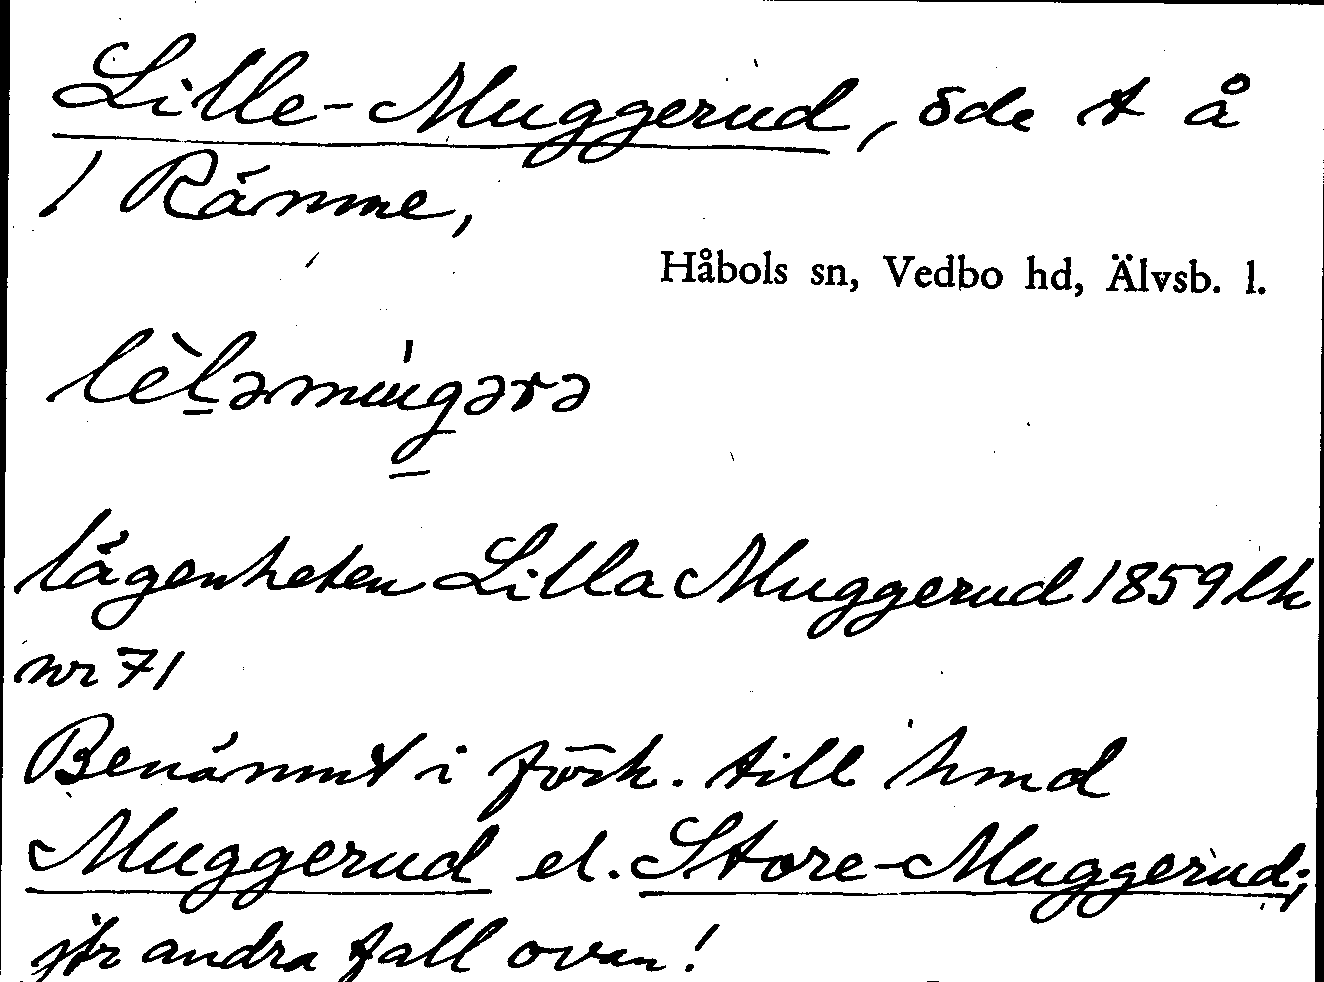 Lille-Muggerud, öde t å
1 Rämne,
Håbols sn, Vedbo hd, Älvsb. l.
lägenheten Lilla Muggerud 1859 lk
nr 71
Benämnt i förh. till hmd
Muggerud el. Store-Muggerud;
jfr andra fall ovan!